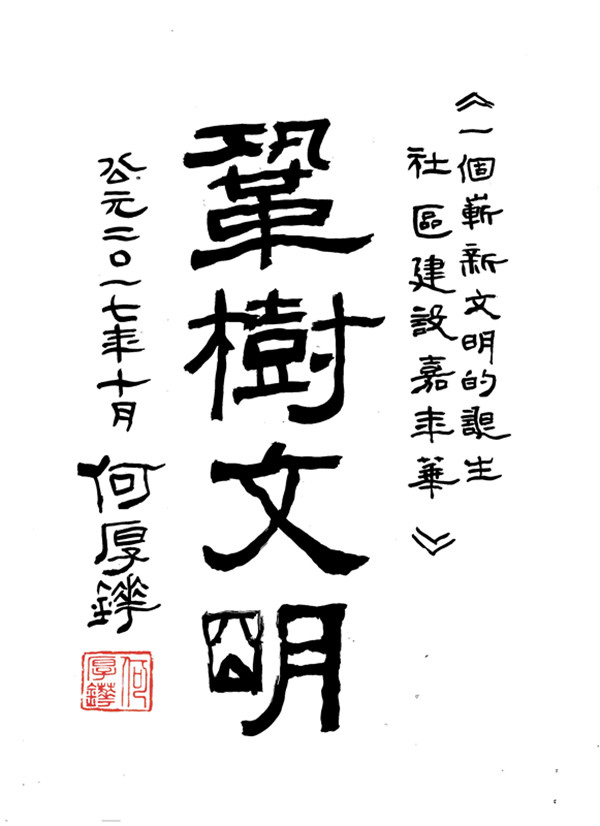 《一個嶄新文明的誕生
社區建設嘉年華》
鞏樹文明
公元二〇一七年十月
何厚鏵
何厚鏵